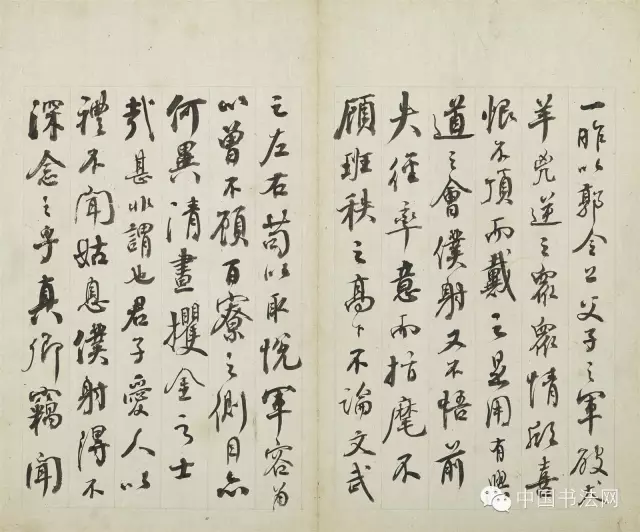 一昨以郭令公父子之軍破犬
羊兇逆之眾眾情欣喜
恨不頂而戴之是用有興
道之會僕射又不悟前
失徑率意而指麾不
顧班秩之高下不論文武
之左右苟以取悅軍容為
心曾不顧百寮之側目亦
何異清晝攫金之士
哉甚非謂也君子愛人以
禮不聞姑息僕射得不
深念之乎真卿竊聞
中国书法网